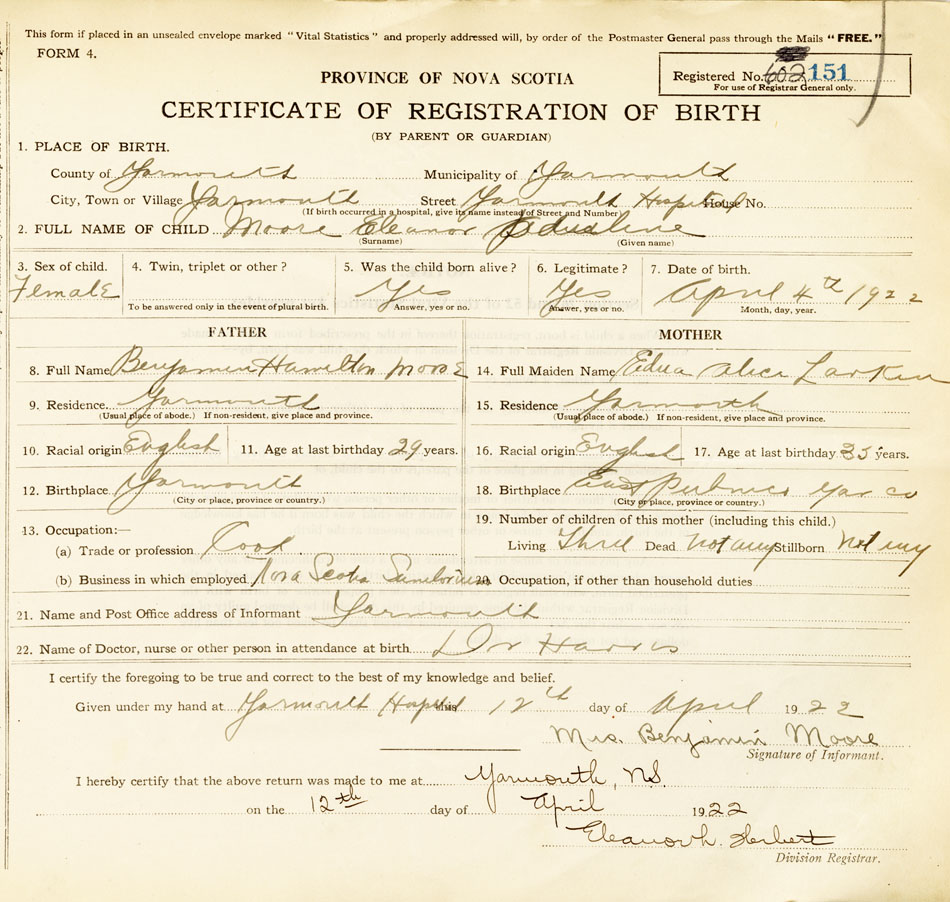 This form if placed in an unsealed envelope marked "Vital Statistics" and properly addressed will, by order of the Postmaster General pass through the Mails "FREE."
FORM 4.
PROVINCE OF NOVA SCOTIA
Registered No. 602 151
For use of Registrar General only.
CERTIFICATE OF REGISTRATION OF BIRTH
(BY PARENT OR GUARDIAN)
1. PLACE OF BIRTH.
County of Yarmouth Municipality of Yarmouth
City, Town or Village Yarmouth Street Yarmouth Hospital House No.
(If birth occurred in a hospital, give its name instead of Street and Number)
2. FULL NAME OF CHILD Moore Eleanor
(Surname) (Given name)
3. Sex of child. 4. Twin, triplet or other? 5. Was the child born alive? 6. Legitimate? 7. Date of birth.
Female Yes Yes April 4th 1922
To be answered only in the event of plural birth. Answer, yes or no. Answer, yes or no. Month, day, year.
FATHER MOTHER
8. Full Name Benjamin Hamilton Moore 14. Full Maiden Name Edna Alice Larkin
9. Residence. Yarmouth 15. Residence Yarmouth
(Usual place of abode.) If non-resident, give place and province. (Usual place of abode.) If non-resident, give place and province.
10. Racial origin English 11. Age at last birthday 29 years. 16. Racial origin English 17. Age at last birthday 35 years.
12. Birthplace Yarmouth 18. Birthplace East Pubnico Yar co
(City or place, province or country.) (City or place, province or country.)
13. Occupation:— 19. Number of children of this mother (including this child.)
(a) Trade or profession Cook Living Three Dead not any Stillborn not any
(b) Business in which employed Nova Scotia 20. Occupation, if other than household duties
21. Name and Post Office address of Informant Yarmouth
22. Name of Doctor, nurse or other person in attendance at birth Dr Harris
I certify the foregoing to be true and correct to the best of my knowledge and belief.
Given under my hand at Yarmouth Hospital this 12th day of April 1922
Mrs. Benjamin Moore
Signature of Informant.
I hereby certify that the above return was made to me at Yarmouth, N.S.
on the 12th day of April 1922
Eleanor h. Herbert
Division Registrar.